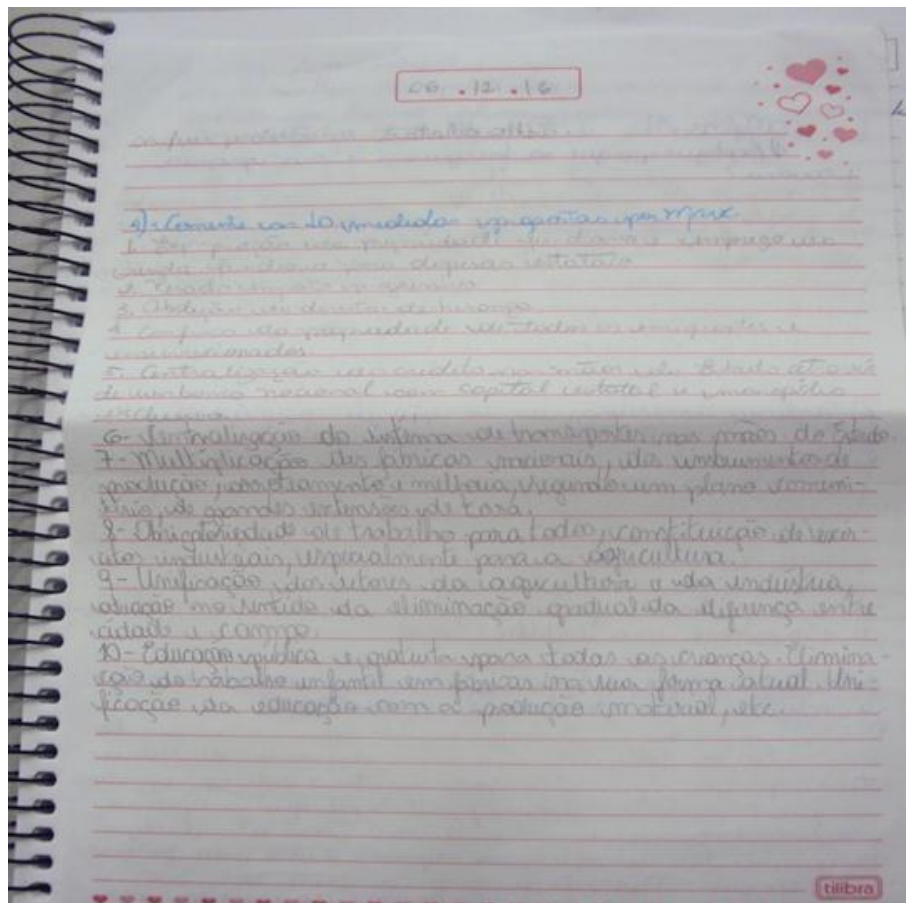 06.12.16
9) Comente as 10 medidas expostas por Marx.
1. Expropriação da propriedade fundiária e emprego da
renda fundiária para despesas estatais
2. Pesado imposto
3. Abolição do direito de herança
4. Confisco da propriedade de todos os emigrantes e
5. Centralização do crédito nas mãos do Estado através
de um banco nacional com capital estatal e monopólio
exclusivo.
6- Centralização do sistema de transportes nas mãos do Estado.
7- Multiplicação das fábricas nacionais, dos instrumentos de
produção, e melhoria, segundo um plano comuni-
tário, de grandes extensões de terra.
8- Obrigatoriedade de trabalho para todos, constituição de exér-
citos industriais, especialmente para a agricultura.
9- Unificação dos setores da agricultura e da indústria,
atuação no sentido da eliminação gradual da diferença entre
cidade e campo.
10- Educação pública e gratuita para todas as crianças. Elimina-
ção do trabalho infantil em fábricas na sua forma atual. Uni-
ficação da educação com a produção material, etc.
tilibra